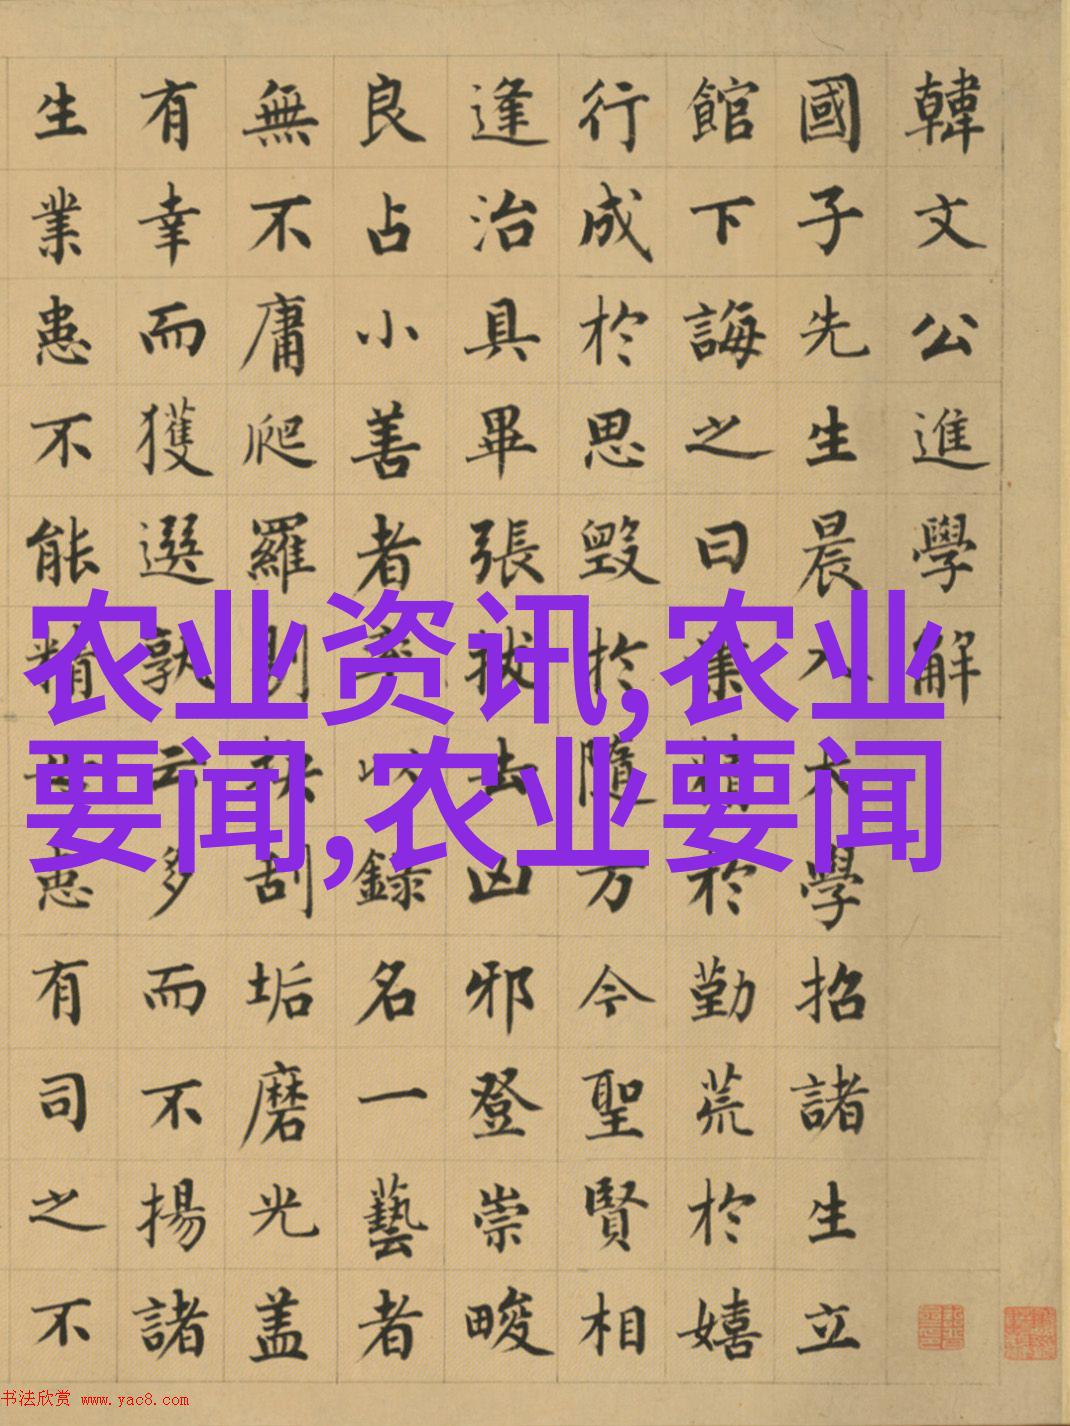 韓文公進學解
國子先生晨入太學招諸生立
館下誨之曰業精於勤荒於嬉
行成於思毀於隨方今聖賢相
逢治具畢張拔去凶邪登崇畯
良占小善者率以錄名一藝者
無不庸爬羅剔抉刮垢磨光盖
有幸而獲選孰云多而不揚諸
生業患不能精無患有司之不
农业资讯,农业
要闻,农业要闻
书法欣赏 www.yac8.com